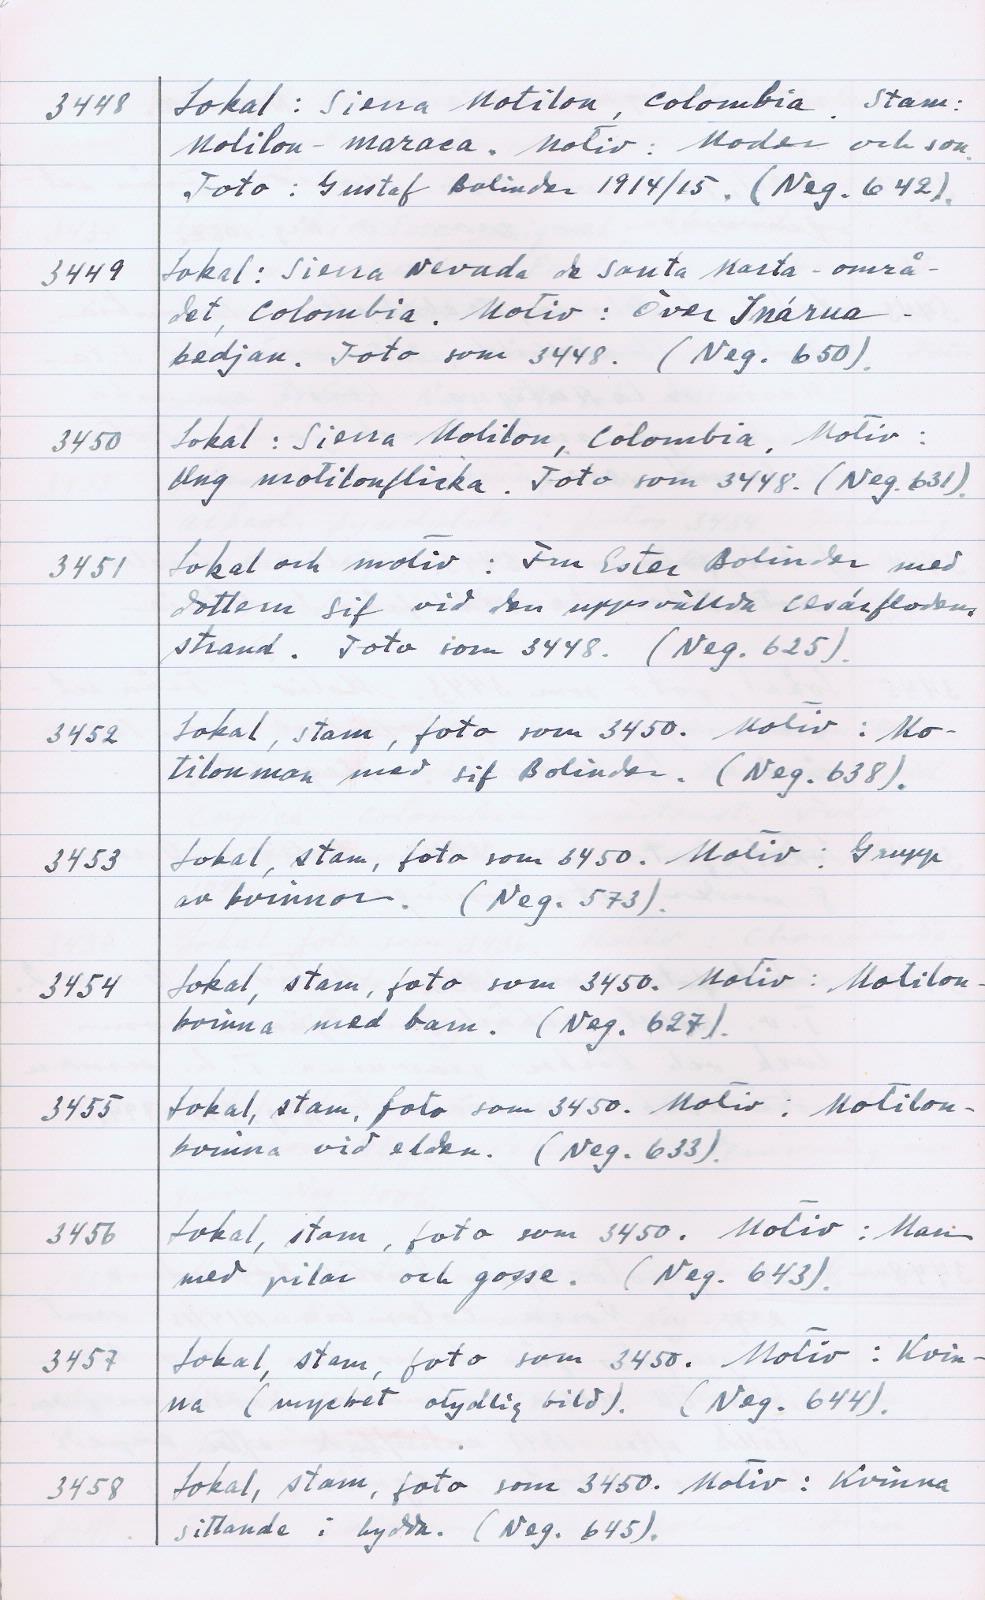 3448 Lokal : Sierra Motilon, Colombia. Stam:
Motilon-maraca. Motiv: Moder och son.
Foto : Gustaf Bolinder 1914/15. (Neg. 642).
3449 Lokal: Sierra Nevada de Santa Marta-områ-
det, Colombia. Motiv : Över Inárua-
kedjan. Foto som 3448. (Neg. 650).
3450 Lokal : Sierra Motilon, Colombia. Motiv :
Ung motilonflicka. Foto som 3448. (Neg. 631).
3451 Lokal och motiv : Fru Ester Bolinder med
dottern Sif vid den uppsvällda Cesárflodens
strand. Foto som 3448. (Neg. 625).
3452 Lokal, stam, foto som 3450. Motiv : Mo-
tilonman med Sif Bolinder. (Neg. 638).
3453 Lokal, stam, foto som 3450. Motiv : Grupp
av kvinnor. (Neg. 573).
3454 Lokal, stam, foto som 3450. Motiv : Motilon-
kvinna med barn. (Neg. 627).
3455 Lokal, stam, foto som 3450. Motiv : Motilon-
kvinna vid elden. (Neg. 633).
3456 Lokal, stam, foto som 3450. Motiv : Man
med pilar och gosse. (Neg. 643).
3457 Lokal, stam, foto som 3450. Motiv : Kvin-
na (mycket otydlig bild). (Neg. 644).
3458 Lokal, stam, foto som 3450. Motiv : Kvinna
sittande i hydda. (Neg. 645).